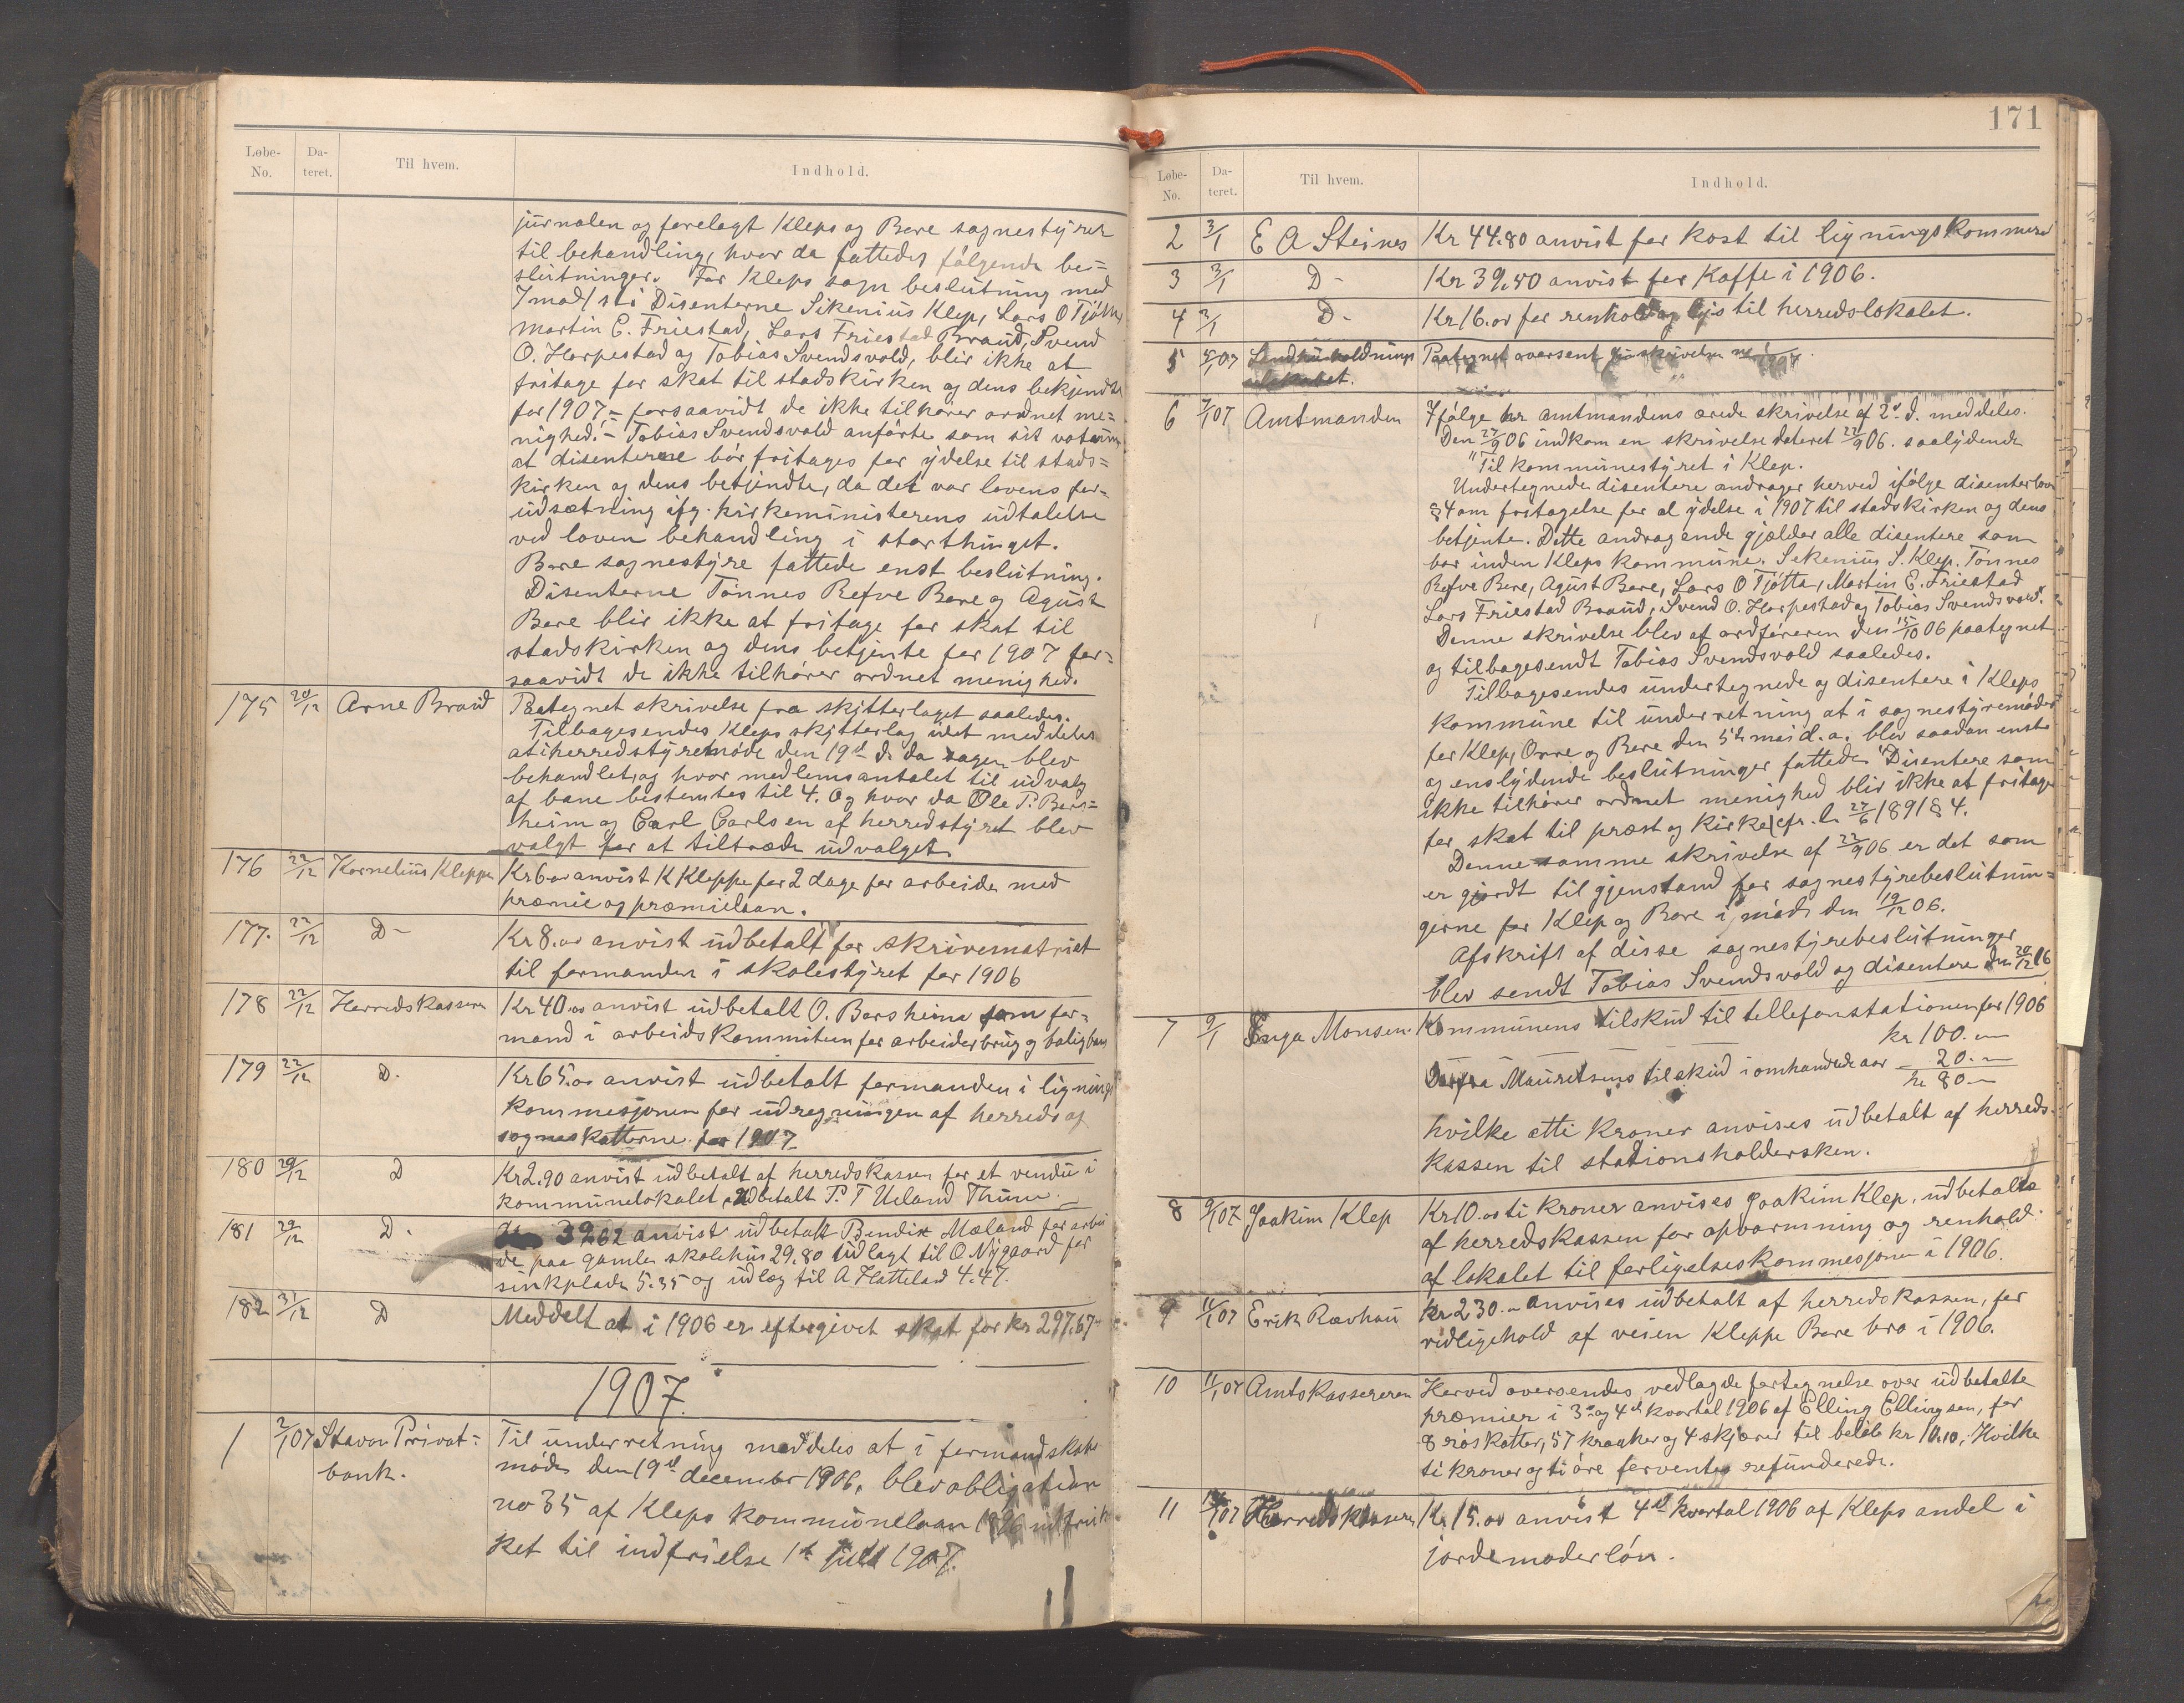 Løbe-No. Da-teret. Til hvem. Indhold.
jurnalen og forelagt Klep og Bore sognestyrer
til behandling, hvor da fattedes følgende be=
slutninger. For Kleps sogn beslutning med
7 mod 1 st: Disenterne Sikenius Klep, Lars O Tjøtta
Martin E. Friestad, Lars Friestad Braud, Svend
O. Horpestad og Tobias Svendsvold, blir ikke at
fritage for skat til stadskirken og dens bekjendte
for 1907,- forsaavidt de ikke tilhører ordnet me=
nighed.- Tobias Svendsvold anførte som sit
at disenterne bør fritages for ydelse til stads=
kirken og dens betjendte, da det var lovens for=
udsætning ifg. kirkeministerens udtalelse
ved loven behandling i storthinget.
Bore sognestyre fattede enst beslutning.
Disenterne Tønnes Refve Bore og Agust
Bore blir ikke at fritage for skat til
stadskirken og dens betjente for 1907 for=
saavidt de ikke tilhører ordnet menighed.
175 20/12 Arne Braud Paategnet skrivelse fra skytterlaget saaledes.
Tilbagesendes Kleps skytterlag idet meddeles
at i herredstyremøde den 19de d. da sagen blev
behandlet, og hvor medlemsantalet til udvalg
af bane bestemtes til 4. Og hvor da Ole P. Bers=
heim og Carl Carlsen af herredstyret blev
valgt for at tiltræde udvalget.
176 22/12 Kornelius Kleppe Kr 6.00 anvist K Kleppe for 2 dage for arbeide med
præmie og præmielaan.
177. 22/12 D- Kr 8.00 anvist udbetalt for skrivematriel
til formanden i skolestyret for 1906
178 22/12 Herredskasseren Kr 40.00 anvist udbetalt O. Bersheim som for=
mand i arbeidskommiteen for arbeiderbrug og
179 22/12 D. Kr 65.00 anvist udbetalt formanden i lignings
kommesjonen for udregningen af herreds og
sogneskatterne for 1907
180 29/12 D Kr 2.90 anvist udbetalt af herredskassen for et vendu i
kommunelokalet udbetalt P. T Ueland Thime.
181 29/12 D. 39.62 anvist udbetalt Bendix Mæland for arbei
de paa gamle skolehus 29.80 udlagt til O. Nygaard for
sinkplade 5.35 og udlæg til A Hatteland 4.47.
182 31/12 D Meddelt at i 1906 er eftergivet skat for kr 297.67
1907.
1 2/1 07 Stavan Privat= Til underretning meddeles at i formandskabs
bank. møde den 19de december 1906, blev obligation
no 35 af Kleps kommunelaan 1896
ket til indfrielse 1ste juli 1907.
171
Løbe-No. Da-teret. Til hvem. Indhold.
2 3/1 E A Steines Kr 44.80 anvist for kost til ligningskommesi
3 3/1 D- Kr 39.40 anvist for Kaffe i 1906.
4 3/1 D- Kr 16.00 for renhold og lys til herredslokalet.
5 5/1 07 Landhusholdnings Paategnet oversent
selskabet.
6 7/1 07 Amtmanden Ifølge hr amtmandens ærede skrivelse af 2de d. meddeles.
Den 27/9 06 indkom en skrivelse dateret 22/9 06. saalydende
"Til kommunestyret i Klep.
Undertegnede disentere andrager herved ifølge disenterlovn
§4 om fritagelse for al ydelse i 1907 til stadskirken og dens
betjente. Dette andragende gjælder alle disentere som
bor inden Kleps kommune. Sikenius S. Klep. Tønnes
Refve Bore, Agust Bore, Lars O Tjøtta, Martin E. Friestad
Lars Friestad Braud, Svend O. Horpestad og Tobias Svendsvold."
Denne skrivelse blev af ordføreren den 15/10 06 paategnet
og tilbagesendt Tobias Svendsvold saaledes.
Tilbagesendes undertegnede og disentere i Kleps
kommune til underretning at i sognestyremøder
for Klep, Orre og Bore den 5te mai d. a. blev saadan enste
og enslydende beslutninger fattede "Disentere som
ikke tilhører ordnet menighed blir ikke at fritage
for skat til præst og kirke, cfr. l. 27/6 1891 § 4.
Denne samme skrivelse af 22/9 06 er det som
er gjordt til gjenstand for sognestyrebeslutnin=
gerne for Klep og Bore i møde den 19/12 06.
Afskrift af disse sognestyrebeslutninger
blev sendt Tobias Svendsvold og disentere den 20/12 06
7 9/1 Inga Monsen. Kommunens tilskud til tellefonstationen for 1906
kr 100.—
Mauritsens tilskud i omhandlede aar - 20.—
kr 80.—
hvilke otti kroner anvises udbetalt af herreds-
kassen til stationsholdersken.
8 9/1 07 Joakim Klep Kr 10.00 ti kroner anvises Joakim Klep, udbetalte
af herredskassen for opvarmning og renhold
af lokalet til forligelseskommesjonen i 1906.
9 11/1 07 Erik Rævhau Kr 230.- anvises udbetalt af herredskassen, for
vidligehold af veien Kleppe Bore bro i 1906.
10 11/1 07 Amtskassereren Herved oversendes vedlagde fortegnelse over udbetalte
præmier i 3de og 4de kvartal 1906 af Elling Ellingsen, for
8 røskatter, 57 kraaker og 4 skjærer til beløb kr 10.10, Hvilke
ti kroner og ti øre forventes refunderede.
11 07 Herredskasseren Kr 15.00 anvist 4de kvartal 1906 af Kleps andel i
jordemoderløn.